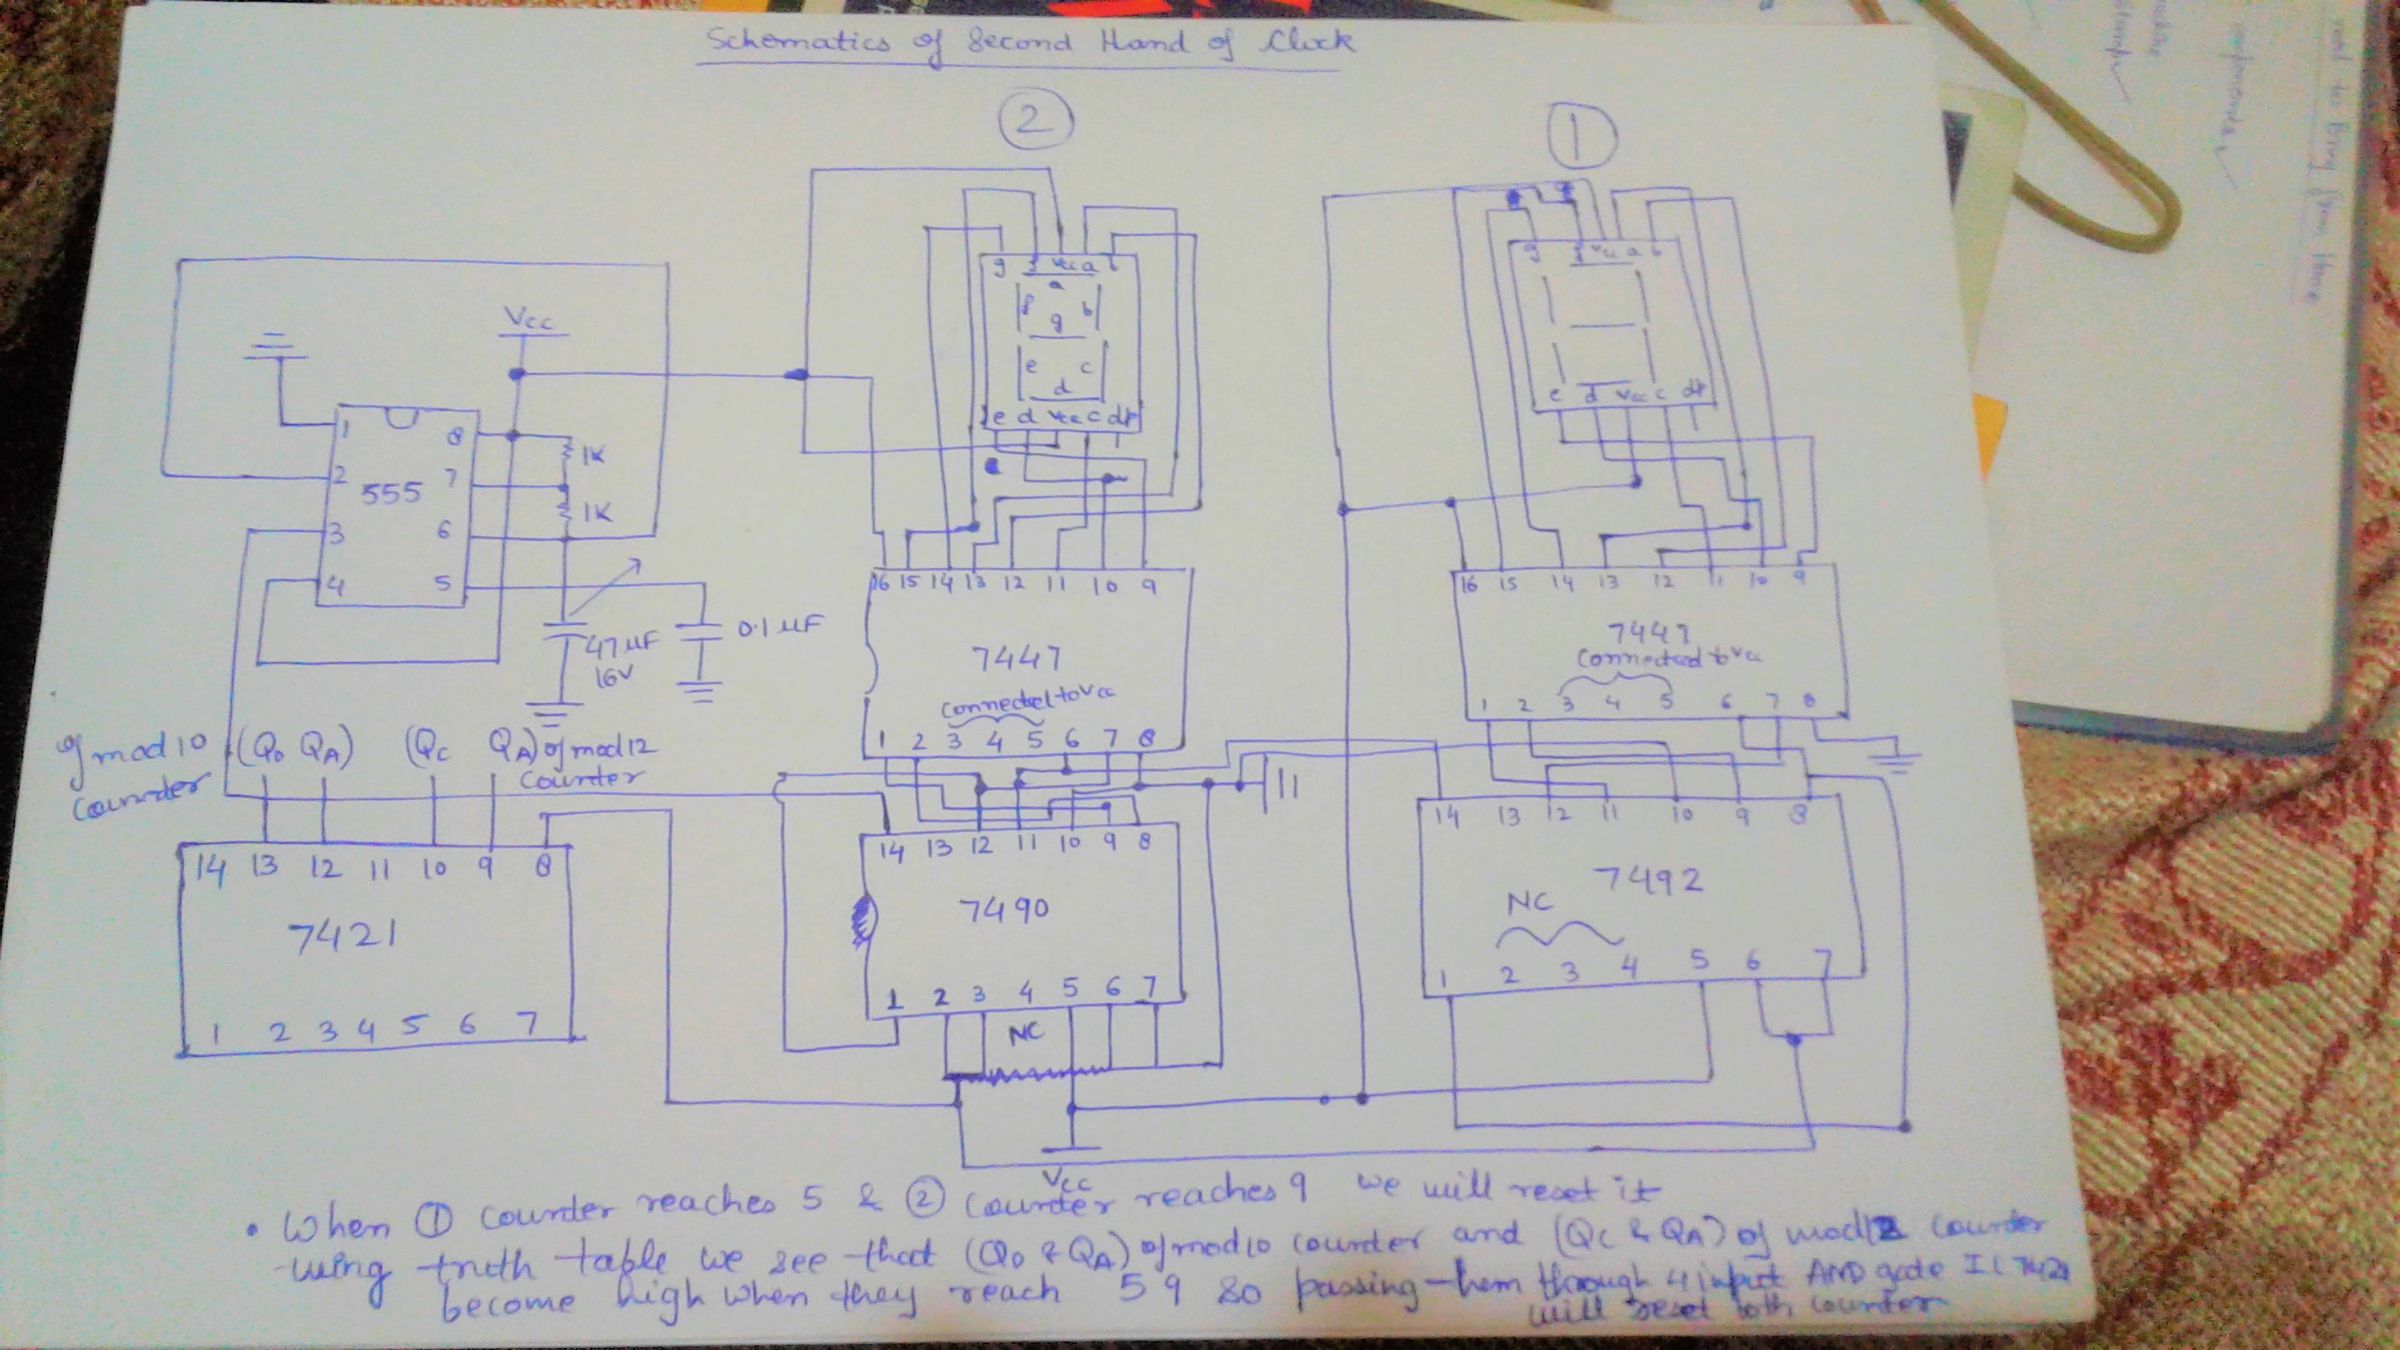 Schematics of Second Hand of Clock
2
1
g f Vcc a b
a
f b
g
e c
d
e d Vcc c dp
g f Vcc a b
e d Vcc c dp
Vcc
1 8
2 7
555
3 6
4 5
1K
1K
47 µF
16V
0.1 µF
16 15 14 13 12 11 10 9
7447
connected to Vcc
1 2 3 4 5 6 7 8
16 15 14 13 12 11 10 9
7447
connected to Vcc
1 2 3 4 5 6 7 8
of mod 10 (QD QA) (QC QA) of mod 12
counter counter
14 13 12 11 10 9 8
7421
1 2 3 4 5 6 7
14 13 12 11 10 9 8
7490
1 2 3 4 5 6 7
NC
14 13 12 11 10 9 8
7492
NC
1 2 3 4 5 6 7
Vcc
• When ① counter reaches 5 & ② counter reaches 9 we will reset it
using truth table we see that (QD & QA) of mod 10 counter and (QC & QA) of mod 12 counter
become high when they reach 5 9 so passing them through 4 input AND gate IC 7421
will reset both counter